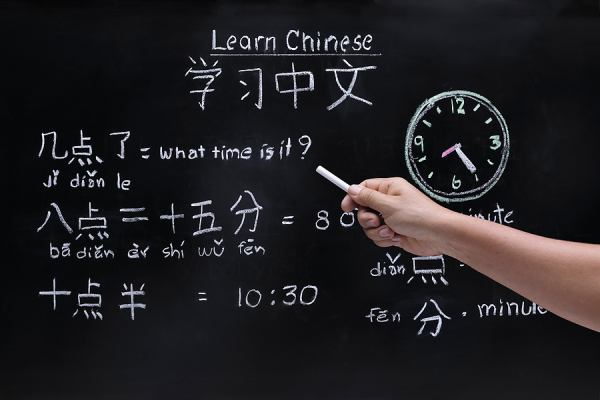 Learn Chinese
学习中文
12
9 3
6
几点了 = what time is it ?
jǐ diǎn le
八点二十五分 = 8
bā diǎn èr shí wǔ fēn
diǎn
十点半 = 10:30
fēn 分